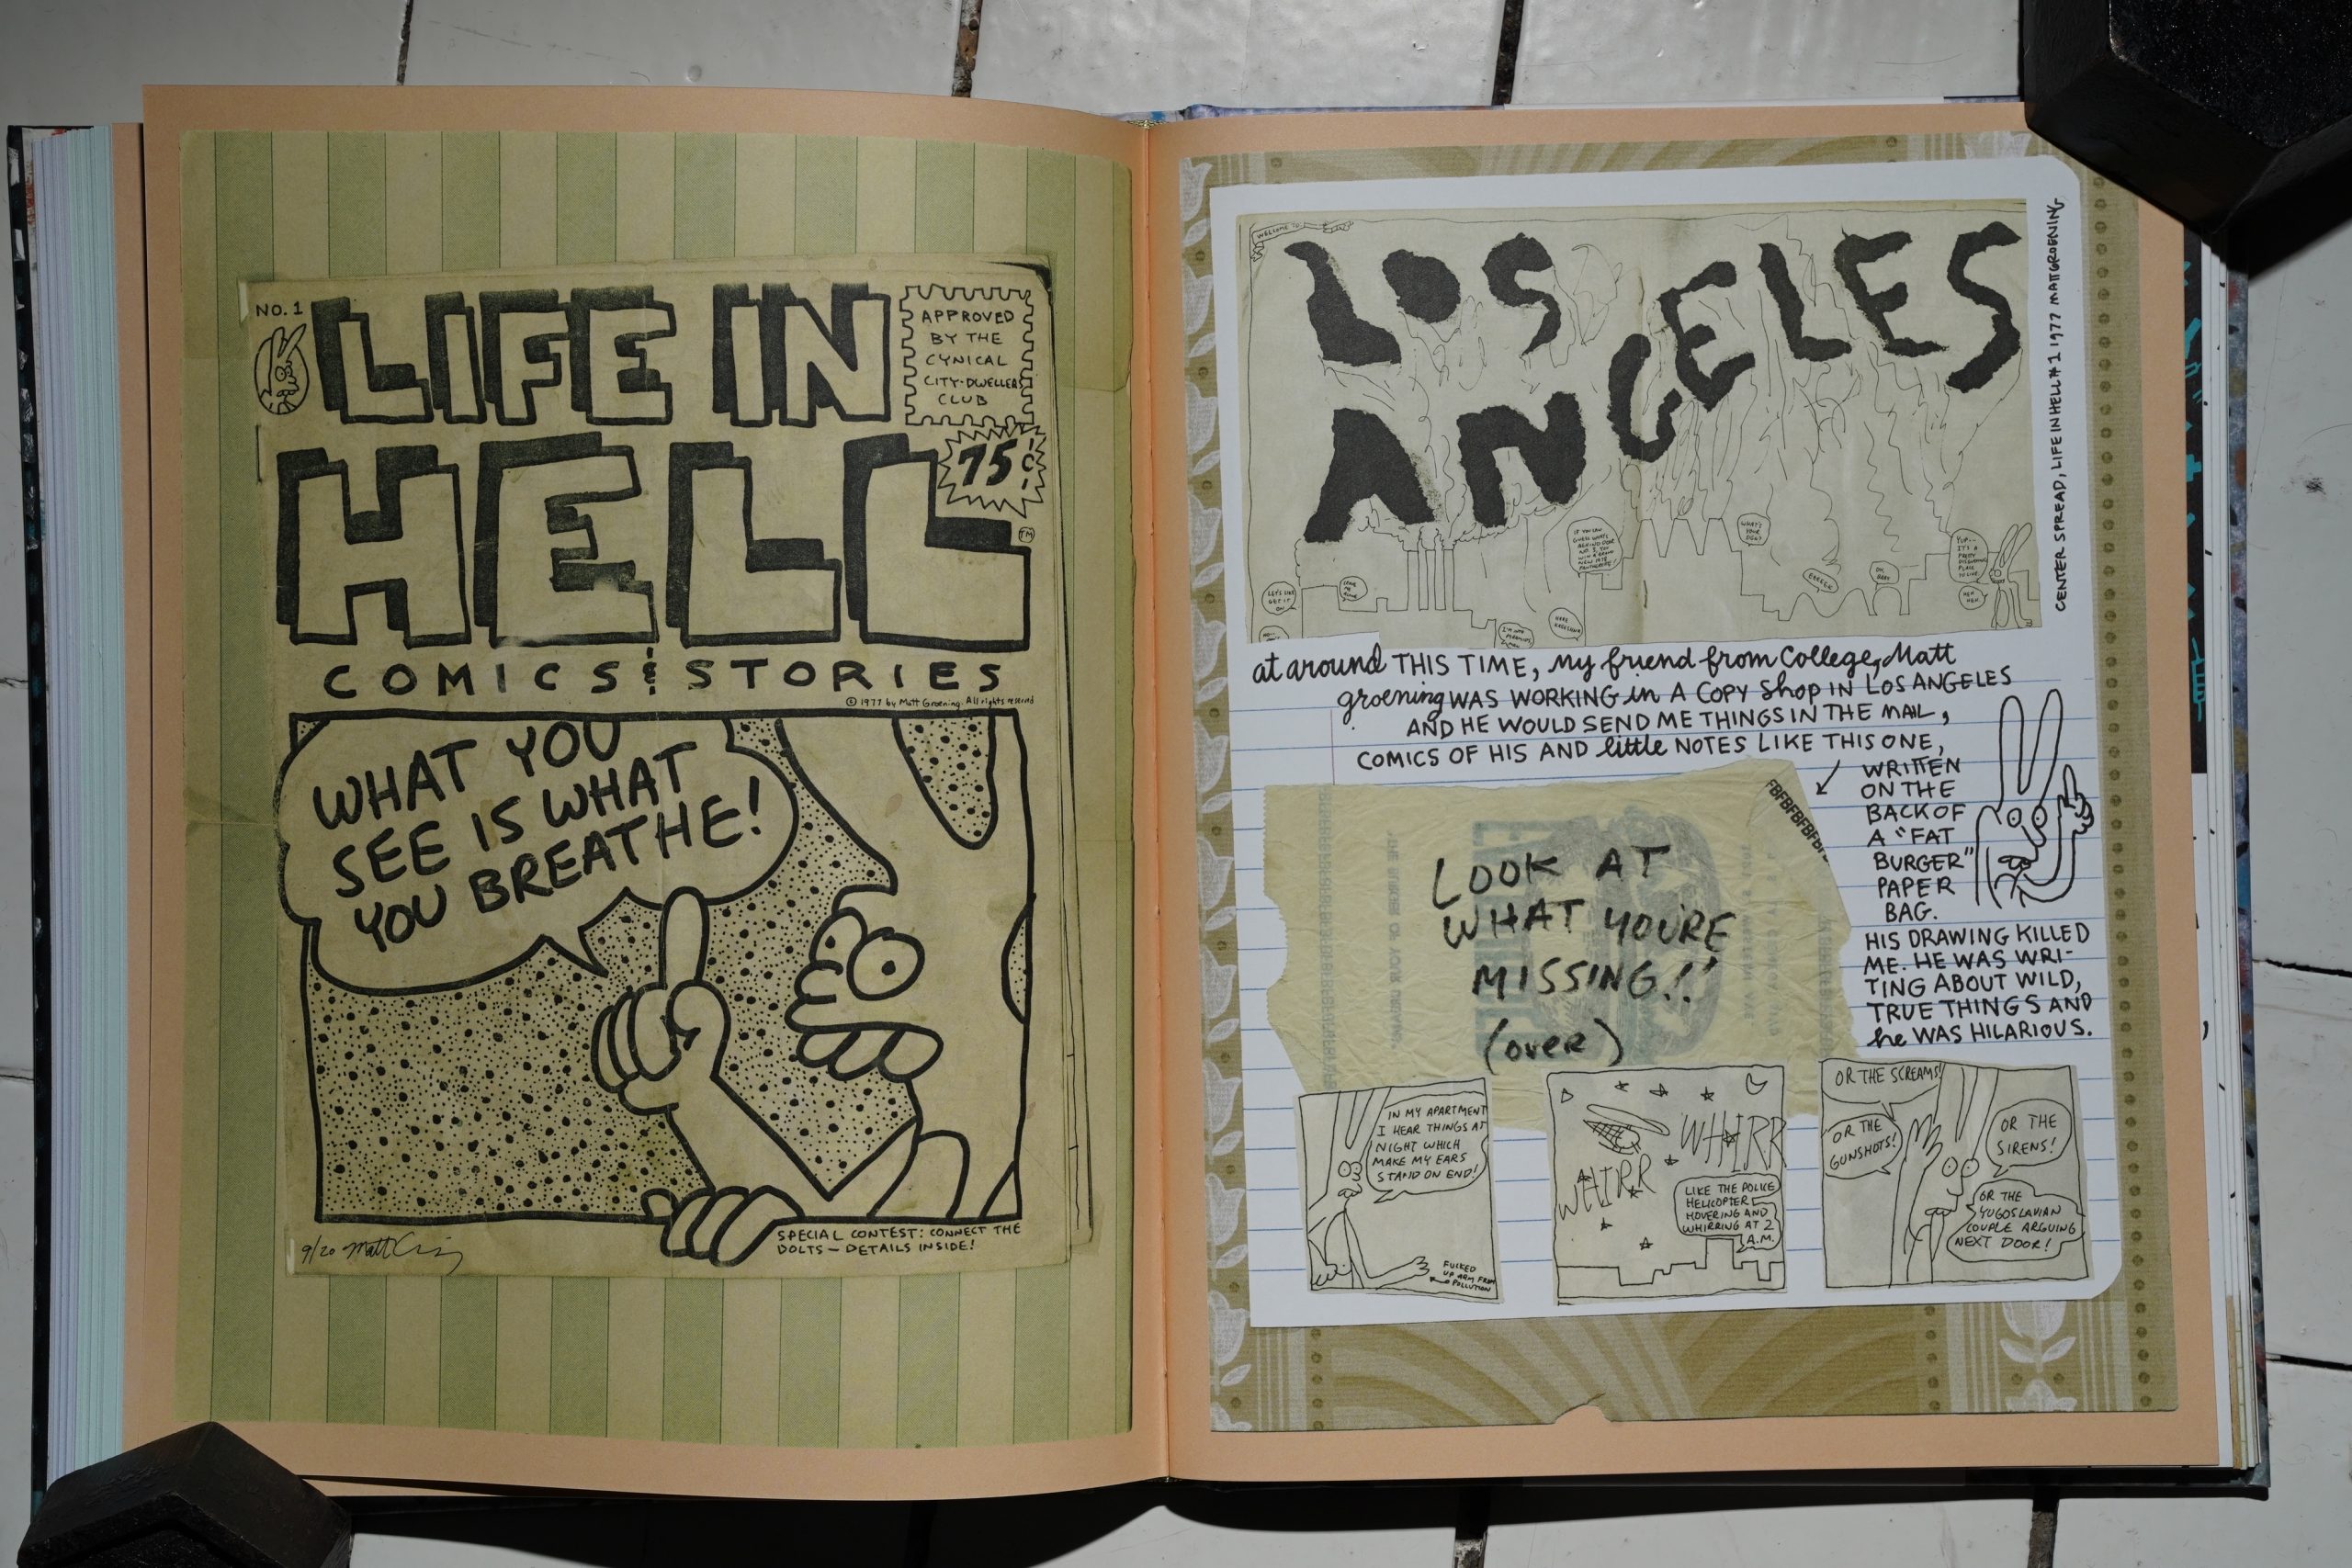 NO. 1
LIFE IN
HELL
APPROVED
BY THE
CYNICAL
CITY-DWELLERS
CLUB
75¢
TM
COMICS & STORIES
© 1977 by Matt Groening. All rights reserved
WHAT YOU
SEE IS WHAT
YOU BREATHE!
SPECIAL CONTEST: CONNECT THE
DOLTS — DETAILS INSIDE!
9/20 Matt
WELCOME TO
LOS
ANGELES
LET'S LIKE
GET IT
ON!
WHAT'S
YOUR
SIGN?
OH,
BABY
YUP...
IT'S A
PRETTY
DISGUSTING
PLACE
TO LIVE.
HEH
HEH.
CENTER SPREAD, LIFE IN HELL #1 1977 MATT GROENING
at around THIS TIME, my friend from College, Matt
groening WAS WORKING in A COPY Shop IN LOS ANGELES
AND HE WOULD SEND ME THINGS IN THE MAIL,
COMICS OF HIS AND little NOTES LIKE THIS ONE,
WRITTEN
ON THE
BACK OF
A "FAT
BURGER"
PAPER
BAG.
HIS DRAWING KILLED
ME. HE WAS WRI-
TING ABOUT WILD,
TRUE THINGS AND
he WAS HILARIOUS.
FBFBFBFBFBF
LOOK AT
WHAT YOU'RE
MISSING!!
(over)
IN MY APARTMENT
I HEAR THINGS AT
NIGHT WHICH
MAKE MY EARS
STAND ON END!
FUCKED
UP ARM FROM
POLLUTION
WHIRR
WHIRR
LIKE THE POLICE
HELICOPTER
HOVERING AND
WHIRRING AT 2
A.M.
OR THE SCREAMS!
OR THE
GUNSHOTS!
OR THE
SIRENS!
OR THE
YUGOSLAVIAN
COUPLE ARGUING
NEXT DOOR!